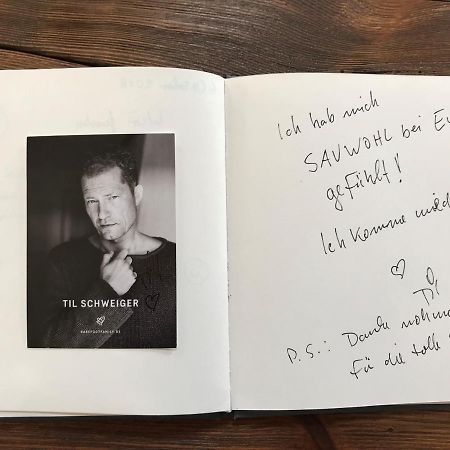 TIL SCHWEIGER
BAREFOOTFAMILY.DE
Ich hab mich
SAUWOHL bei Eu
gefühlt!
Ich komme wied
P.S.: Danke nochma
für die tolle